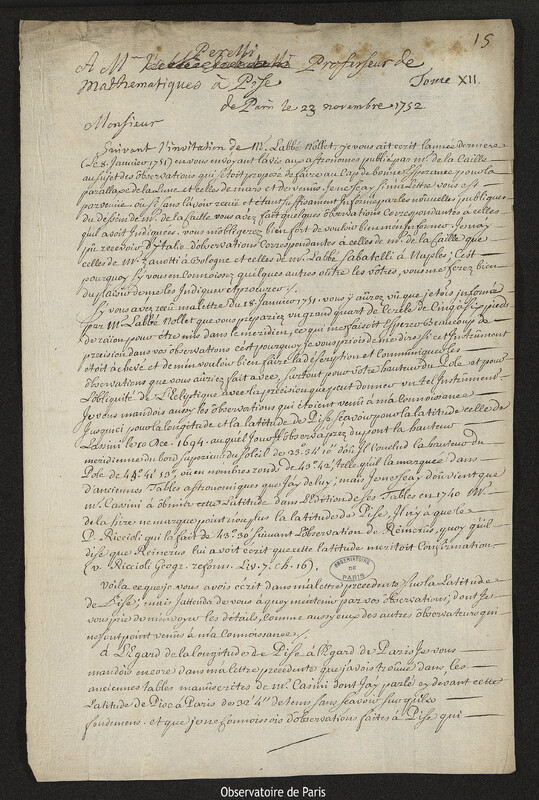 15
Perelli
A Mr. Professeur de
Mathematiques à Pise
Tome XII.
de Paris le 23 novembre 1752
Monsieur
Suivant l'invitation de Mr. Labbé Nollet, je vous ait ecrit lannée derniere
(Le 8. Janvier 1751) en vous envoyant lavis aux astronomes publié par mr. de la Caille
au sujet des observations qu'il etoit proposé de faire au Cap de bonne Esperance pour la
parallaxe de la Lune et celles de mars et de venus. Je ne sçay si ma Lettre vous est
parvenüe, ou si sans l'avoir receüe et étant suffisament informé par les nouvelles publiques
du dessein de mr. de la Caille vous avez fait quelques observations Correspondantes à celles
qu'il a voit Indiquées. vous m'obligerez bien fort de vouloir bien m'en Informer. Je n'ay
pu recevoir D'Italie d'observations Correspondantes à celles de mr. de la Caille que
celles de mr. Zanotti à Bologne et celles de mr. Labbé Sabatelli à Naples; C'est
pourquoy si vous en Connoissez quelques autres outre les vôtres, vous me ferez bien
du plaisir de me les Indiquer et procurer.
Si vous avez receu ma lettre Du 18. Janvier 1751. vous y aurez vû que j'etois informé
par Mr. Labbé Nollet que vous prepariez un grand quart de Cercle de Cinq à Six pieds
de raion pour être mis dans le meridien, ce qui me faisoit Esperer Beaucoup de
precision dans vos observations c'est pourquoy Je vous priois de me dire si cet Instrument
etoit achevé et de m'en vouloir bien faire la description et Communiquer les
observations que vous auriez fait avec, surtout pour votre hauteur du Pole et pour
L'obliquité de L'Ecliptique avec la precision que peut donner un tel Instrument.
Je vous mandois aussy les observations qui étoient venus à ma Connoissance
Jusqu'ici pour la longitude et la latitude de Pise sçavoir pour la latitude celle de
Cassini le 10 Dec. 1694. auquel Jour Il observa prez du pont la hauteur
meridienne du bord superieur du Soleil de 23. 34' 10" doù Il Conclud la hauteur du
Pole de 43°. 41' 53", ou en nombres ronds de 43°. 42', telle quil la marquée dans
d'anciennes Tables astronomiques que Jay de luy; mais Je ne sçay d'où vient que
mr. Cassini à obmis cette Latitude dans L'edition de ses Tables en 1740. Mr.
de la Hire ne marque point non plus la latitude de Pise, Il n'y à que le
P. Riccioli qui la fait de 43°. 30' suivant L'observation de Reinerius, quoy quil
dise que Reinerius lui avoit ecrit que cette latitude meritoit Confirmation
(v. Riccioli Geogr. reform. Liv. 7. ch. 16).
OBSERVATOIRE DE PARIS
Voila ce que je vous avois écrit dans ma lettre precedente sur la Latitude
de Pise; mais J'attends de vous à quoy m'en tenir par vos observations; dont Je
vous prie de m'envoyer les détails, Comme aussy ceux des autres observateurs qui
ne sont point venües à ma Connoissance.
à L'Egard de la Longitude de Pise à l'Egard de Paris Je vous
mandois encore dans ma lettre precedente que javois trouvé dans les
anciennes tables manuscrites de mr. Cassini dont Jay parlé cy devant cette
Latitude de Pise à Paris de 32' 4" de tems sans sçavoir sur quels
fondemens. et que je ne Connoissois d'observations faites à Pise qui
Observatoire de Paris